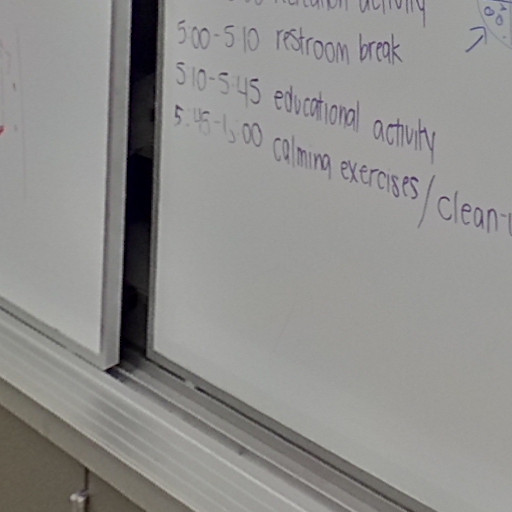 activity
5:00-5:10 restroom break
5:10-5:45 educational activity
5:45-6:00 calming exercises/clean-